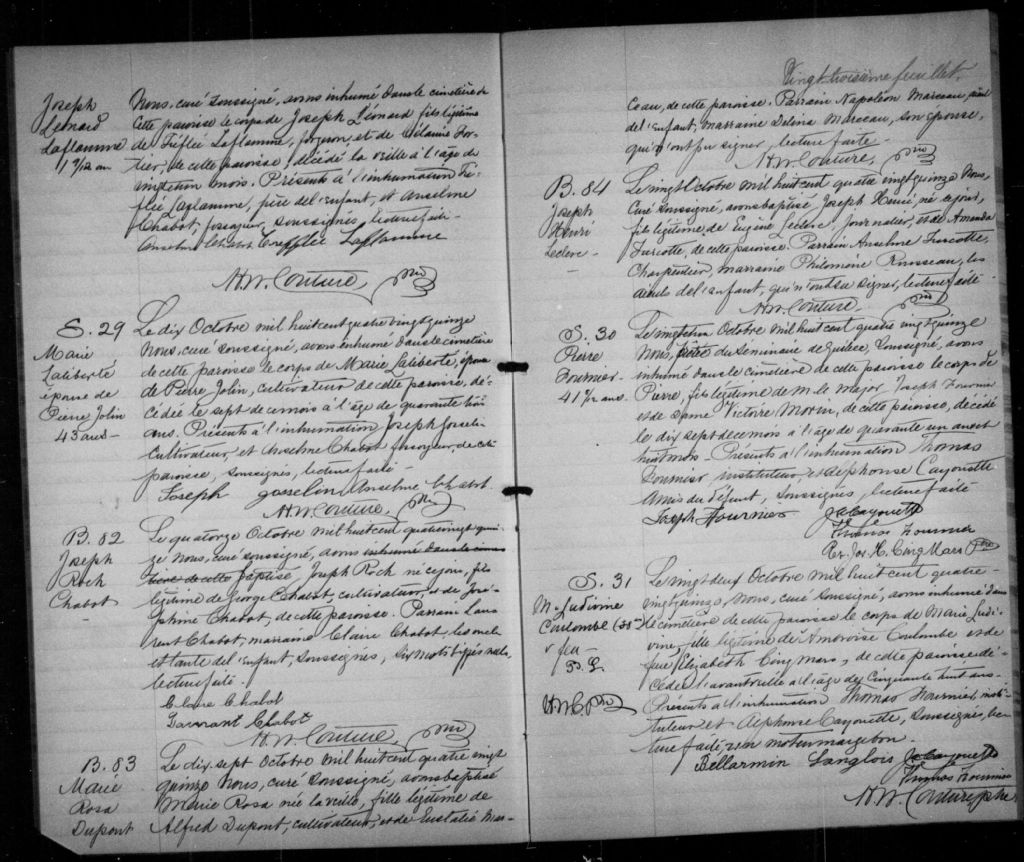 Joseph
Léonard
Laflamme
11/12 an
Nous, curé soussigné, avons inhumé dans le cimetière de
cette paroisse le corps de Joseph Léonard fils légitime
de Trefflée Laflamme, forgeron, et de Mélanie For-
tier, de cette paroisse, décédé la veille à l'âge de
mois. Présents à l'inhumation Tre-
fflée Laflamme, père de l'enfant, et Anselme
Chabot, fossoyeur, soussignés, lecture faite.
Anselme Chabot Trefflée Laflamme
H.W. Couture, ptre
S. 29
Marie
Laliberté
épouse de
Pierre Jolin
43 ans
Le dix Octobre mil huit cent quatre vingt quinze
Nous, curé soussigné, avons inhumé dans le cimetière
de cette paroisse le corps de Marie Laliberté, épouse
de Pierre Jolin, cultivateur de cette paroisse, dé-
cédée le sept de ce mois à l'âge de quarante trois
ans. Présents à l'inhumation Joseph Gosselin
cultivateur, et Anselme Chabot fossoyeur, de cette
paroisse soussignés, lecture faite.
Joseph gosselin Anselme Chabot.
H.W. Couture, ptre
B. 82
Joseph
Roch
Chabot
Le quatorze Octobre mil huit cent quatre vingt quin-
ze Nous, curé soussigné, avons inhumé dans le cime-
tière de cette baptisé, Joseph Roch né ce jour, fils
légitime de George Chabot, cultivateur, et de José-
phine Chabot, de cette paroisse. Parrain Lau-
rent Chabot, marraine Claire Chabot, les oncle
et tante de l'enfant, soussignés, six mots biffés nuls,
lecture faite.
Claire Chabot
Laurent Chabot
H.W. Couture, ptre
B. 83
Marie
Rosa
Dupont
Le dix sept Octobre mil huit cent quatre vingt
quinze Nous, curé soussigné, avons baptisé
Marie Rosa née la veille, fille légitime de
Alfred Dupont, cultivateur, et de Eustalie Mar-
Vingt troisième feuillet.
ceau, de cette paroisse. Parrain Napoléon Marceau, aïeul
de l'enfant, marraine Delvina Marceau, son épouse,
qui n'ont pu signer, lecture faite.
H.W. Couture, ptre
B. 84
Joseph
Henri
Leclerc
Le vingt Octobre mil huit cent quatre vingt quinze Nous,
Curé soussigné, avons baptisé Joseph Henri né ce jour,
fils légitime de Eugène Leclerc, Journalier, et de Amanda
Turcotte, de cette paroisse. Parrain Anselme Turcotte,
Charpentier, marraine Philomène Rousseau, les
aïeuls de l'enfant, qui n'ont su signer, lecture faite
H.W. Couture, ptre
S. 30
Pierre
Fournier
41 8/12 ans
Le vingt un Octobre mil huit cent quatre vingt quinze
Nous, du Séminaire de Québec, soussigné, avons
inhumé dans le cimetière de cette paroisse le corps de
Pierre, fils légitime de M. le Major Joseph Fournier
et de Dame Victoire Morin, de cette paroisse, décédé
le dix sept de ce mois à l'âge de quarante un ans et
huit mois. Présents à l'inhumation Thomas
Fournier instituteur, et Alphonse Cayouette
amis du défunt, soussignés, lecture faite
Joseph Fournier JA Cayouette
Thomas Fournier
Jos. H. Cinq Mars Ptre
S. 31
M. Ludivine
Coulombe
feu
H.W.C. Ptre
Le vingt deux Octobre mil huit cent quatre-
vingt quinze, Nous, curé soussigné, avons inhumé dans
le cimetière de cette paroisse le corps de Marie Ludi-
vine, fille légitime de Ambroise Coulombe et de
feue Elizabeth Cinq mars, de cette paroisse dé-
cédée l'avant veille à l'âge de cinquante huit ans.
Présents à l'inhumation Thomas Fournier, insti-
tuteur et Alphonse Cayouette, soussignés, lec-
ture faite, un mot en marge bon.
Bellarmin Langlois JA Cayouette
Thomas Fournier
H.W. Couture ptre